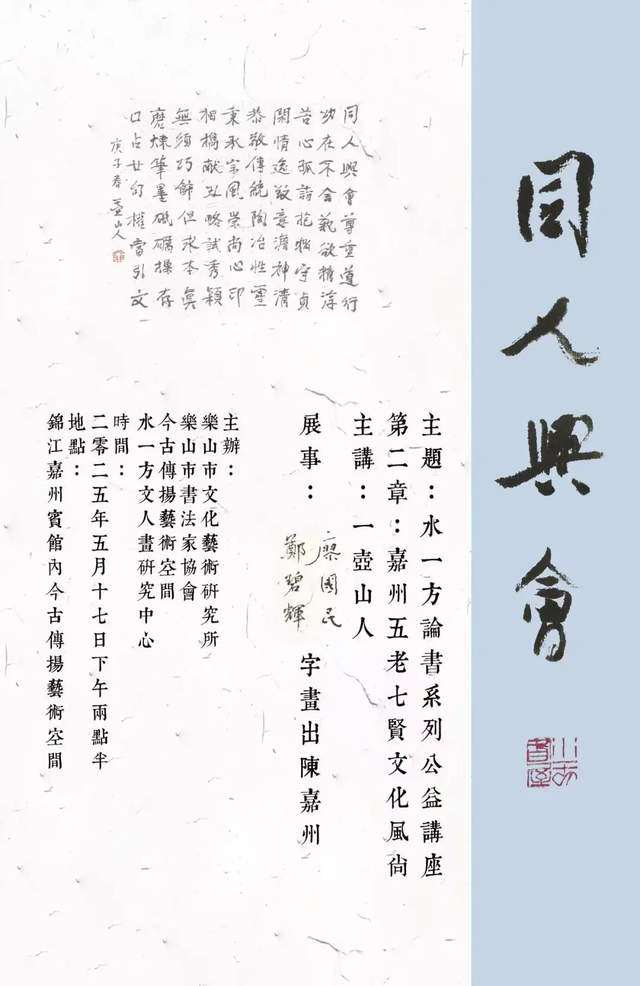 同人興會
同人興會尊重道行
功在不舍藝欲精淳
苦心孤詣抱樸守貞
閑情逸致意澹神清
恭敬傳統陶冶性靈
秉承家風崇尚心印
相攜献丑略試秀穎
無須巧飾但求本真
磨煉筆墨砥礪操存
口占廿句權當引文
庚子春壺山人
主題：水一方論書系列公益講座
第二章：嘉州五老七賢文化風尚
主講：一壺山人
展事：
糜國民
鄭碧輝
字畫出陳嘉州
主辦：
樂山市文化藝術研究所
樂山市書法家協會
今古傳揚藝術空間
水一方文人畫研究中心
時間：
二零二五年五月十七日下午兩點半
地點：
錦江嘉州賓館內今古傳揚藝術空間